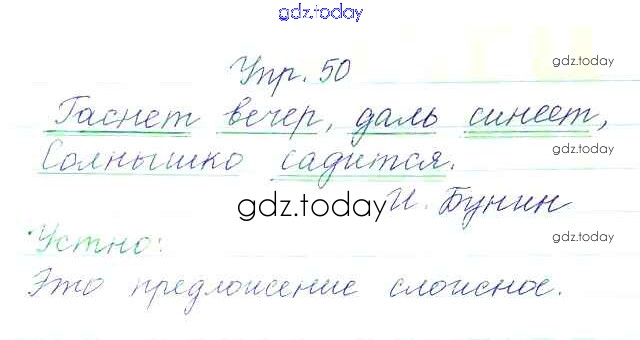 gdz.today
Упр. 50
gdz.today
Гаснет вечер, даль синеет,
Солнышко садится.
gdz.today
И. Бунин
gdz.today
Устно:
gdz.today
Это предложение сложное.